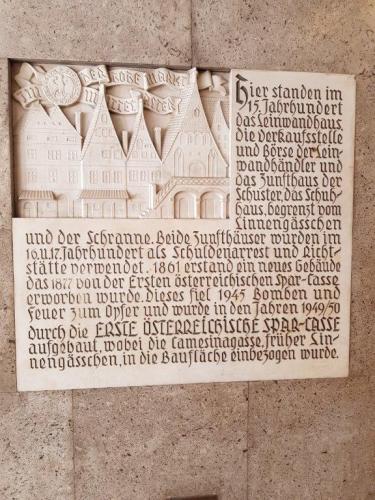 DER HOHE MARKT
IM MITTELALTER
Hier standen im
15. Jahrhundert
das Leinwandhaus,
die Verkaufsstelle
und Börse der Lein-
wandhändler und
das Zunfthaus der
Schuster, das Schuh-
haus, begrenzt vom
Linnengässchen
und der Schranne. Beide Zunfthäuser wurden im
16.u.17. Jahrhundert als Schuldenarrest und Richt-
stätte verwendet. 1861 erstand ein neues Gebäude
das 1877 von der Ersten österreichischen Spar-Casse
erworben wurde. Dieses fiel 1945 Bomben und
Feuer zum Opfer und wurde in den Jahren 1949/50
durch die ERSTE ÖSTERREICHISCHE SPAR-CASSE
aufgebaut, wobei die Camesinagasse, früher Lin-
nengässchen, in die Baufläche einbezogen wurde.